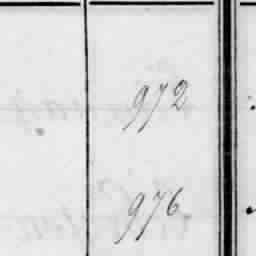 972
976